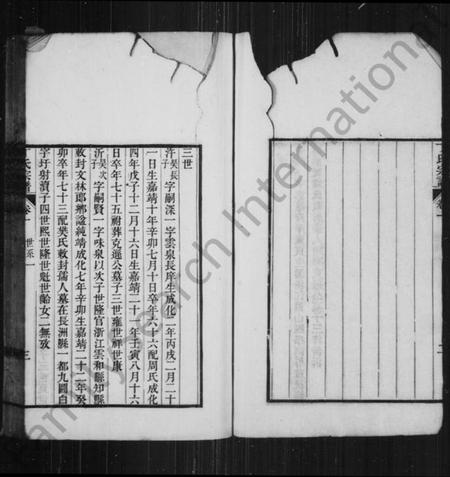 三世
汻吳長子字嗣深一字雲泉長庠生成化二年丙戌二月二十
一日生嘉靖十年辛卯七月十日卒年六十六配周氏成化
四年戊子十二月十六日生嘉靖二十一年壬寅八月十六
日卒年七十五祔葬克遜公墓子三世雍世祥世康
沂吳次子字嗣賢一字味泉以次子世隆官浙江雲和縣知縣
敕封文林郎鄉諡純靖成化七年辛卯生嘉靖二十二年癸
卯卒年七十三配樊氏敕封孺人墓在長洲縣一都九圖白
字圩射瀆子四世熙世隆世魁世齡女二無攷
丁氏宗譜
卷一
世系一
三
FamilySearch International